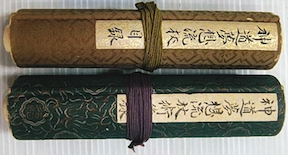 神道夢想流杖
目録
神道夢想流杖術